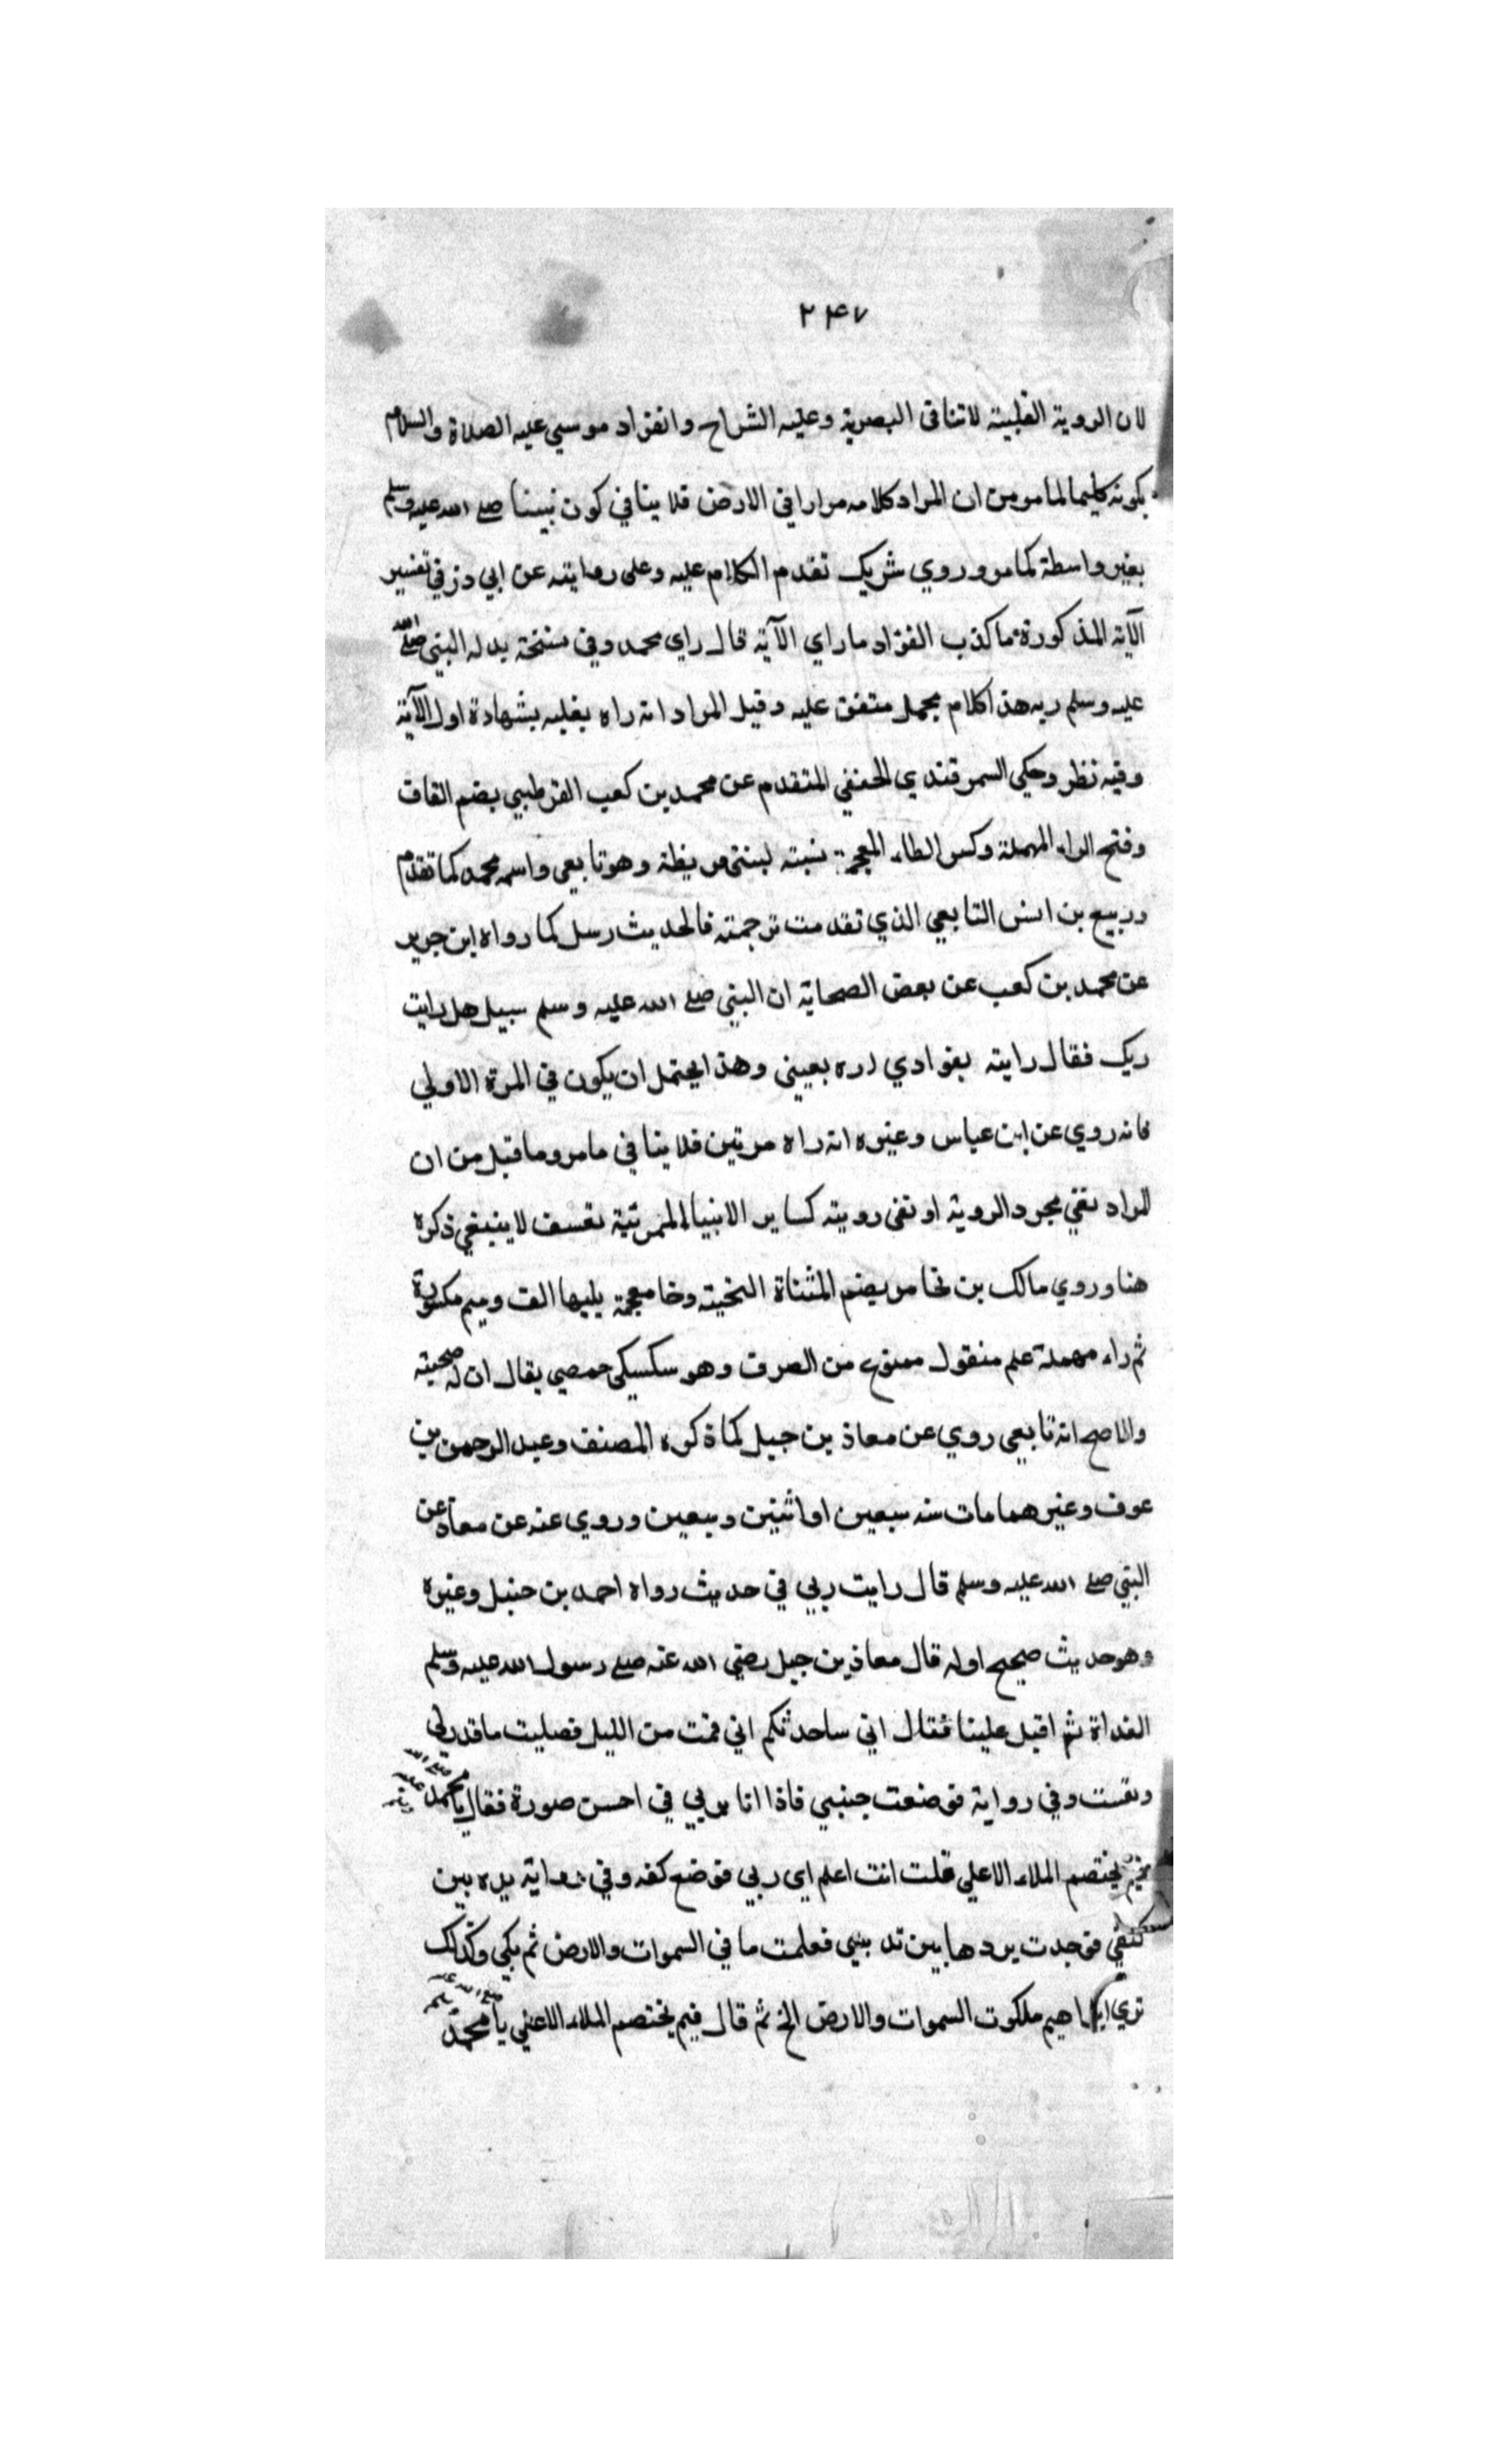 ٢٤٧
لان الروية القلبية لاتنافى البصرية وعليه الشراح وانفراد موسي عليه الصلاة والسلام
بكونه كليما لما مر من ان المراد كلامه مرارا في الارض فلا ينافي كون نبينا صلى الله عليه وسلم
بغير واسطة كما مر وروي شريك تقدم الكلام عليه وعلى روايته عن ابي ذر في تفسير
الآية المذكورة ما كذب الفؤاد ما راي الآية قال راي محمد وفي نسخة بدله النبي صلى الله
عليه وسلم ربه هذا كلام مجمل متفق عليه وقيل المراد انه راه بقلبه بشهادة اول الآية
وفيه نظر وحكي السمرقندي الحنفي المتقدم عن محمد بن كعب القرطبي بضم القاف
وفتح الراء المهملة وكسر الطاء المعجمة نسبته لبني قريظة وهو تابعي واسمه محمد كما تقدم
وربيع بن انس التابعي الذي تقدمت ترجمته فالحديث رسل كما رواه ابن جرير
عن محمد بن كعب عن بعض الصحابة ان النبي صلى الله عليه وسلم سيل هل رايت
ربك فقال رايته بفوادي اره بعيني وهذا يحتمل ان يكون في المرة الاولي
فانه روي عن ابن عباس وغيره انه راه مرتين فلا ينافي ما مر وما قيل من ان
المراد نفي مجرد الروية او نفى رويته كساير الانبياء المرتبة تعسف لا ينبغي ذكره
هنا وروي مالك بن نخامر بضم المثناة التحتية وخا معجمة يليها الف وميم مكسورة
ثم راء مهملة علم منقول ممنوع من الصرف وهو سكسيكى حمصي يقال ان له صحبته
والاصح انه تابعي روي عن معاذ بن جبل كما ذكره المصنف وعبد الرحمن بن
عوف وغيرهما مات سنه سبعين او اثنين وسبعين وروي عنه عن معاذ عن
النبي صلى الله عليه وسلم قال رايت ربي في حديث رواه احمد بن حنبل وغيره
وهو حديث صحيح اوله قال معاذ بن جبل رضي الله عنه صلى رسول الله عليه وسلم
الغداة ثم اقبل علينا فقال اني ساحدثكم اني قمت من الليل فصليت ما قدر لي
ونعست وفي رواية فوضعت جنبي فاذا انا بربي في احسن صورة فقال يا محمد صلى الله عليه وسلم
فيم يختصم الملاء الاعلي قلت انت اعلم اي ربي فوضع كفه وفي رواية يده بين
كتفي فوجدت بردها بين ثدييي فعلمت ما في السموات والارض ثم بكي وكذلك
نري ابراهيم ملكوت السموات والارض الخ ثم قال فيم يختصم الملاء الاعلي يا محمد صلى الله عليه وسلم